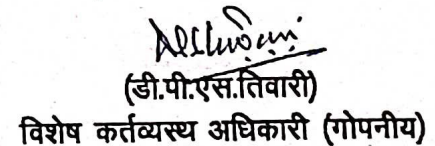 (डी.पी.एस.तिवारी)
विशेष कर्तव्यस्थ अधिकारी (गोपनीय)